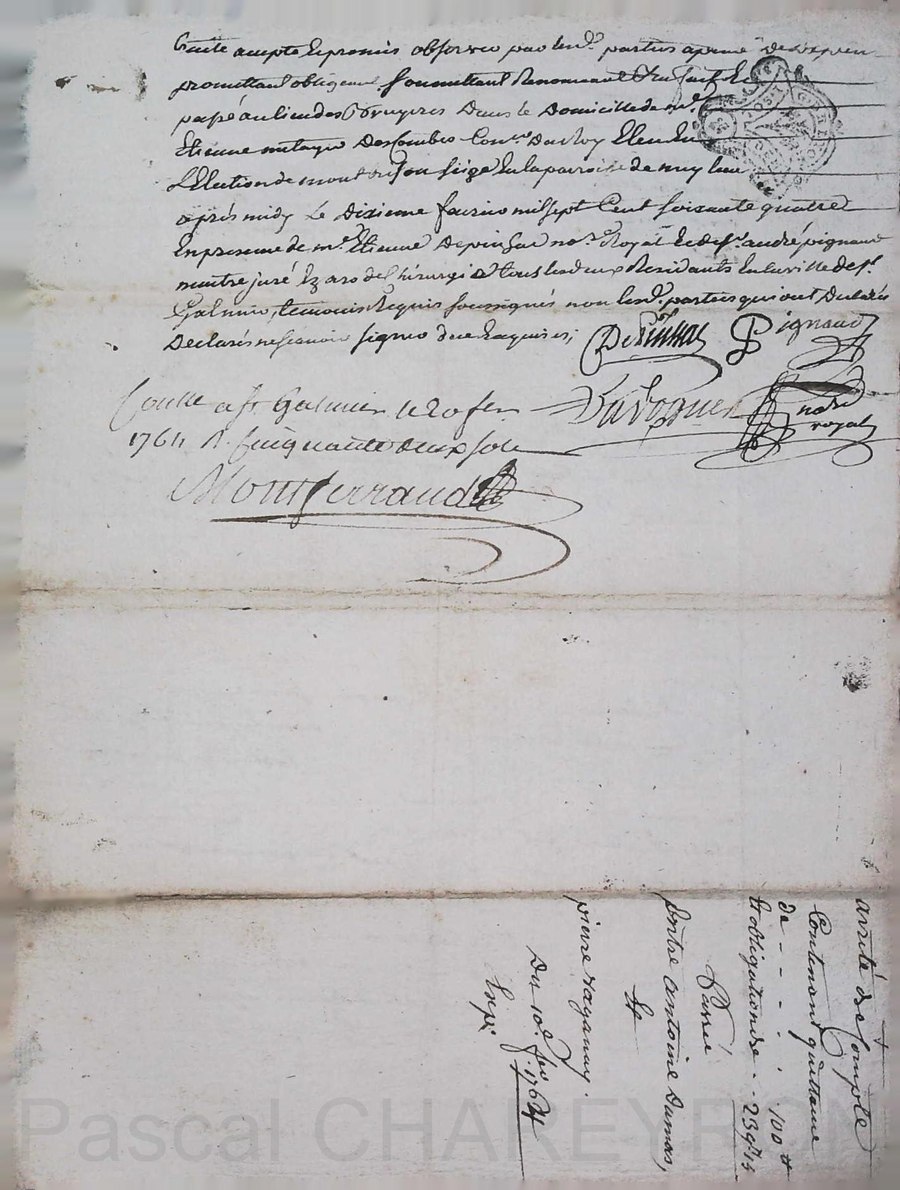 traité accepté et promis observer par lesd. parties a peine de despens
promettant obligeant soumettant Renonçant &c. fait et
passé au lieu des Bruyeres Dans le Domicille de m.
Etienne Des Combes Con.er Du Roy Eleu En
L'Election de montbrison siège En la parroisse de
apres midy Le Dixieme fevrier mil sept Cent soixante quatre
En presence de m. Etienne Depinhac no.re Royal et de s.r andré pignaud
maitre juré Ez arts de Chirurgie tous les deux Residants En la ville de S.t
Galmier, temoins Requis soussignés non lesd. parties qui ont
Declarés ne sçavoir signer de ce Enquises;
Depinhac Pignaud
Con.lle a St Galmier le 20 fev
1764 R. cinquante deux sols
no.re royal
Montferrand
arreté de Compte
Contenant quittance
de - - - . 100 tt
et obligation de . 239 tt 14
Passé
Entre antoine Dumas,
Et
pierre
Du 10.e fev. 1764
Exp.
Pascal CHAREYRON